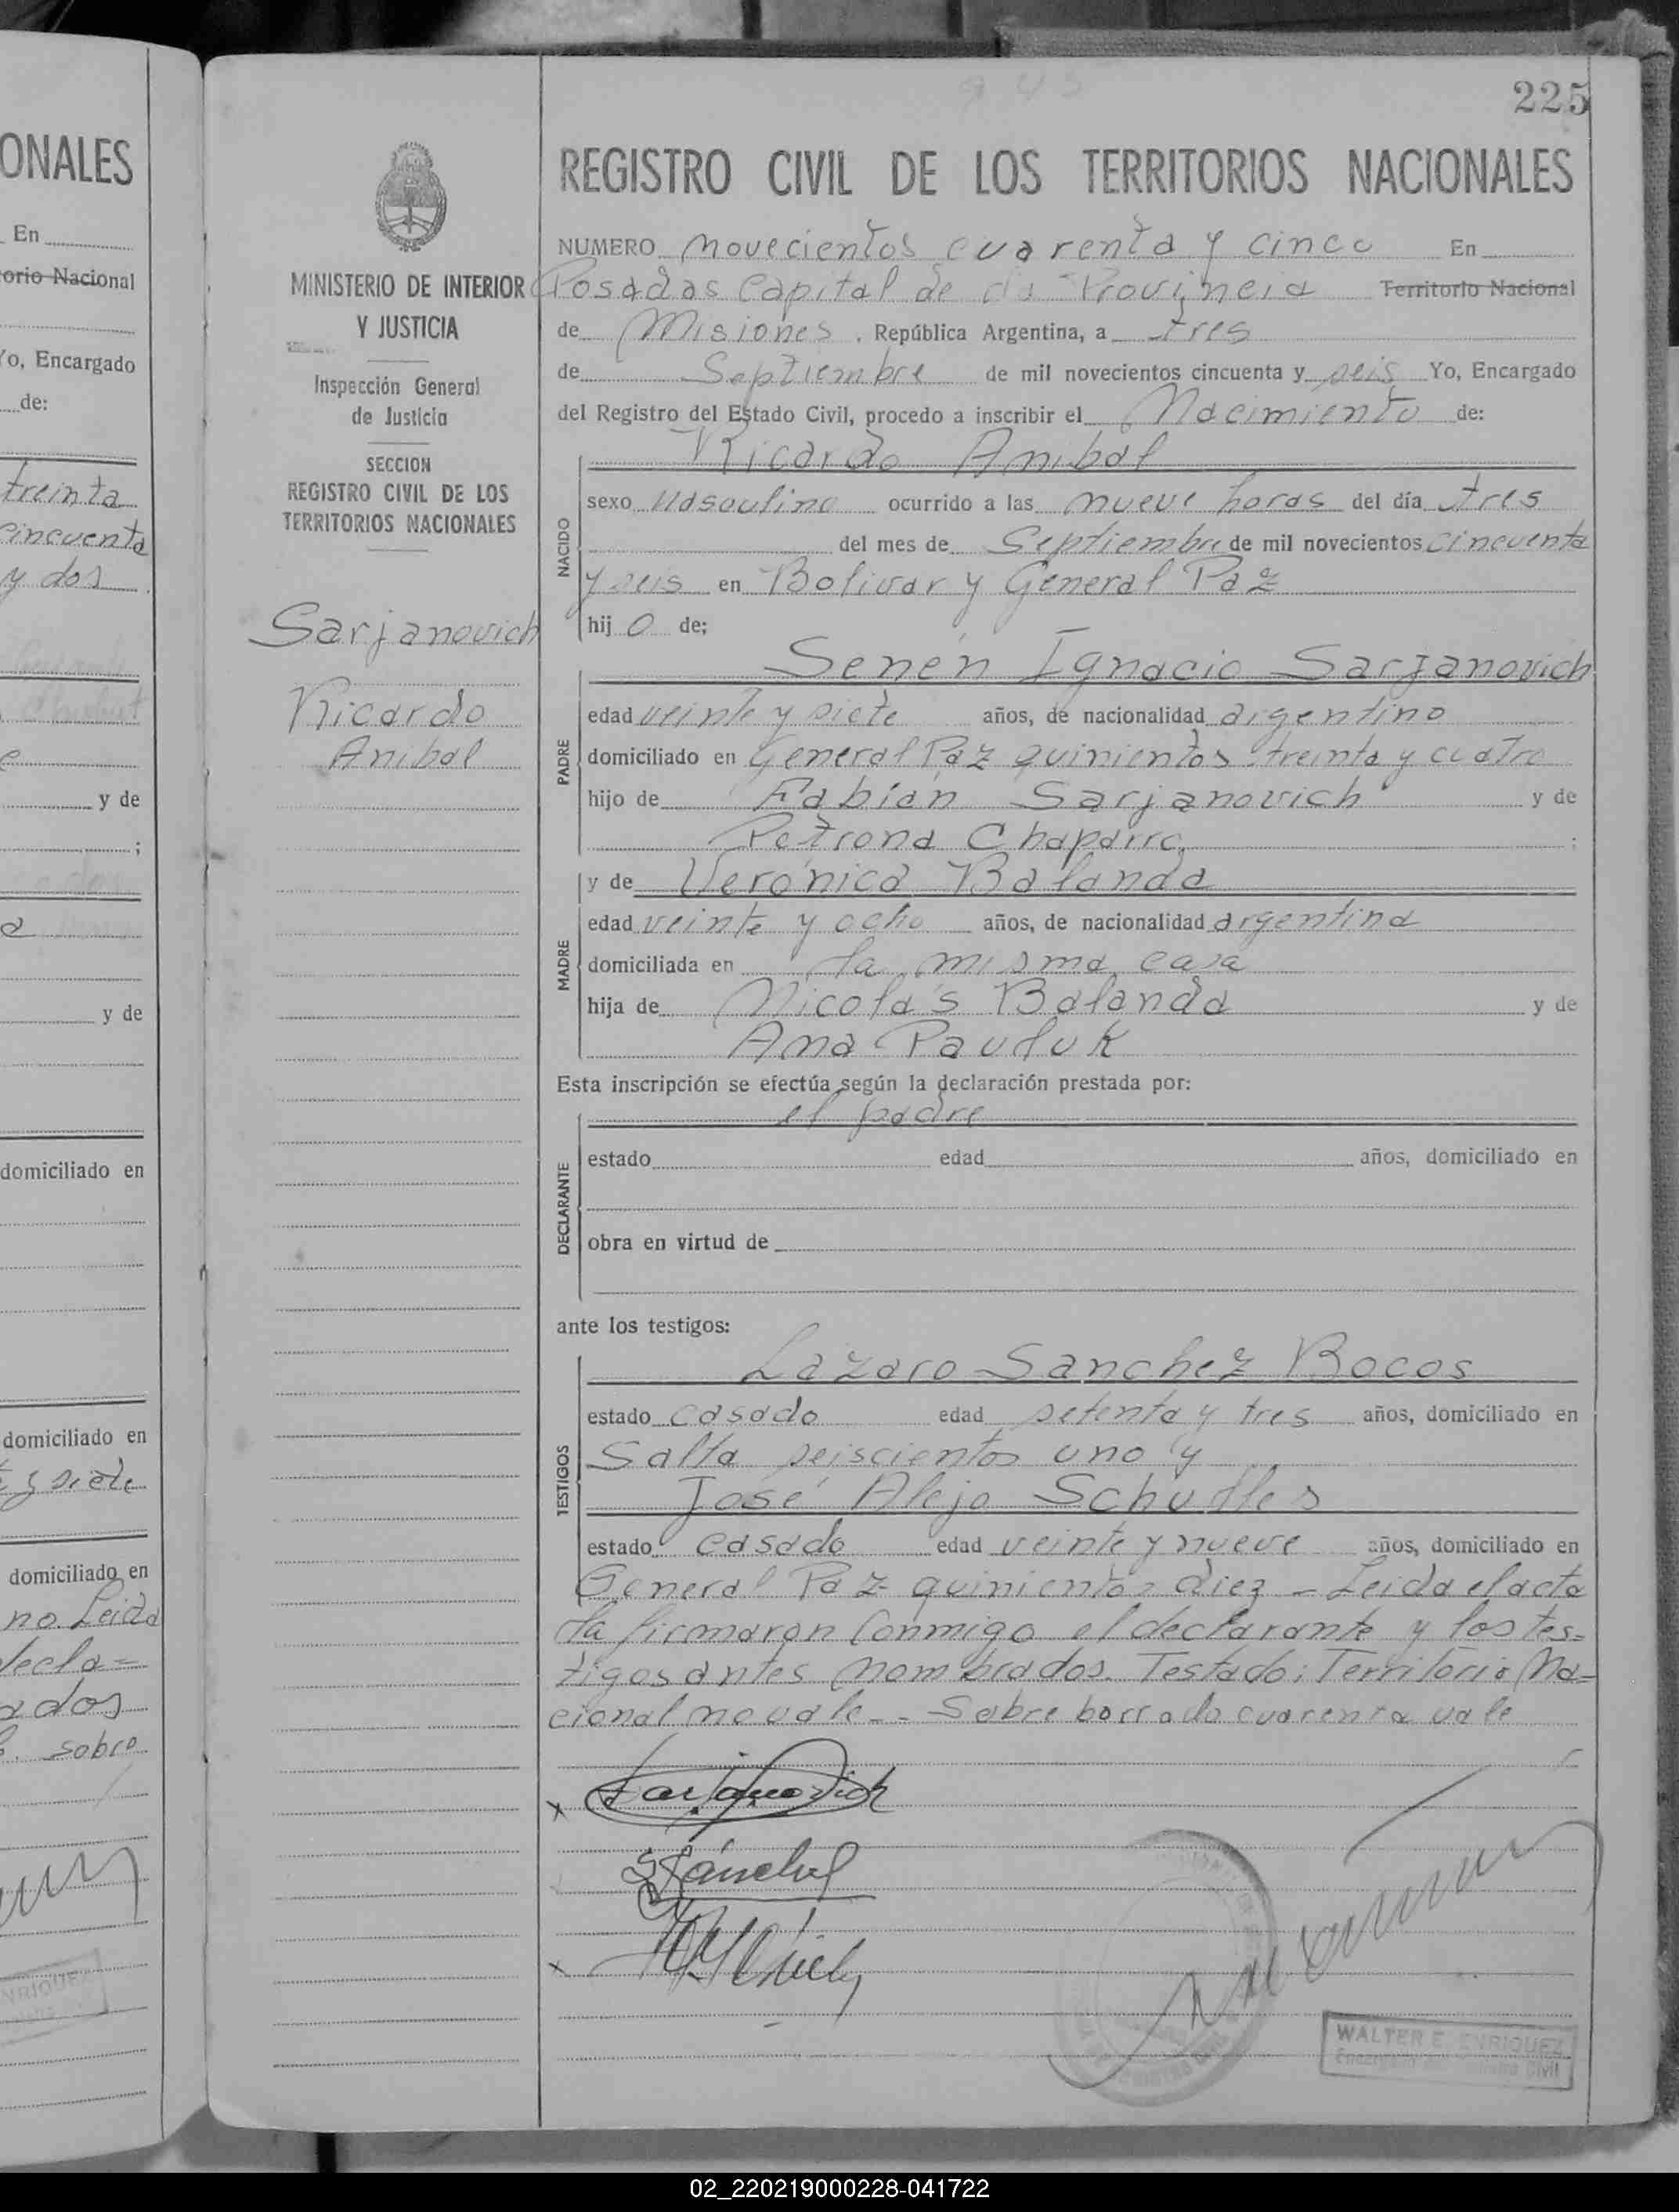 ONALES
En
orio Nacional
Yo, Encargado
de:
treinta
cincuenta
y dos
y de
;
y de
domiciliado en
domiciliado en
y siete
domiciliado en
no. Leida
decla=
ados
sobre
225
MINISTERIO DE INTERIOR
Y JUSTICIA
Inspección General
de Justicia
SECCION
REGISTRO CIVIL DE LOS
TERRITORIOS NACIONALES
Sarjanovich
Ricardo
Anibal
REGISTRO CIVIL DE LOS TERRITORIOS NACIONALES
NUMERO novecientos cuarenta y cinco En
Posadas Capital de la Provincia Territorio Nacional
de Misiones . República Argentina, a tres
de Septiembre de mil novecientos cincuenta y seis Yo, Encargado
del Registro del Estado Civil, procedo a inscribir el Nacimiento de:
Ricardo Anibal
NACIDO
sexo Masculino ocurrido a las nueve horas del día tres
del mes de Septiembre de mil novecientos cincuenta
y seis en Bolivar y General Paz
hij o de;
Senén Ignacio Sarjanovich
PADRE
edad veinte y siete años, de nacionalidad argentino
domiciliado en General Paz quinientos treinta y cuatro
hijo de Fabián Sarjanovich y de
Petrona Chaparro ;
y de Verónica Balanda
MADRE
edad veinte y ocho años, de nacionalidad argentina
domiciliada en la misma casa
hija de Nicolás Balanda y de
Ana Pauluk
Esta inscripción se efectúa según la declaración prestada por:
el padre
DECLARANTE
estado edad años, domiciliado en
obra en virtud de
ante los testigos:
Lázaro Sanchez Bocos
TESTIGOS
estado casado edad setenta y tres años, domiciliado en
Salta seiscientos uno y
José Alejo
estado casado edad veinte y nueve años, domiciliado en
General Paz quinientos diez - Leida el acta
la firmaron conmigo el declarante y los tes=
tigos antes nombrados. Testado: Territorio Na=
cional no vale -- Sobre borrado cuarenta vale
Sarjanovich
WALTER E. ENRIQUEZ
02_220219000228-041722